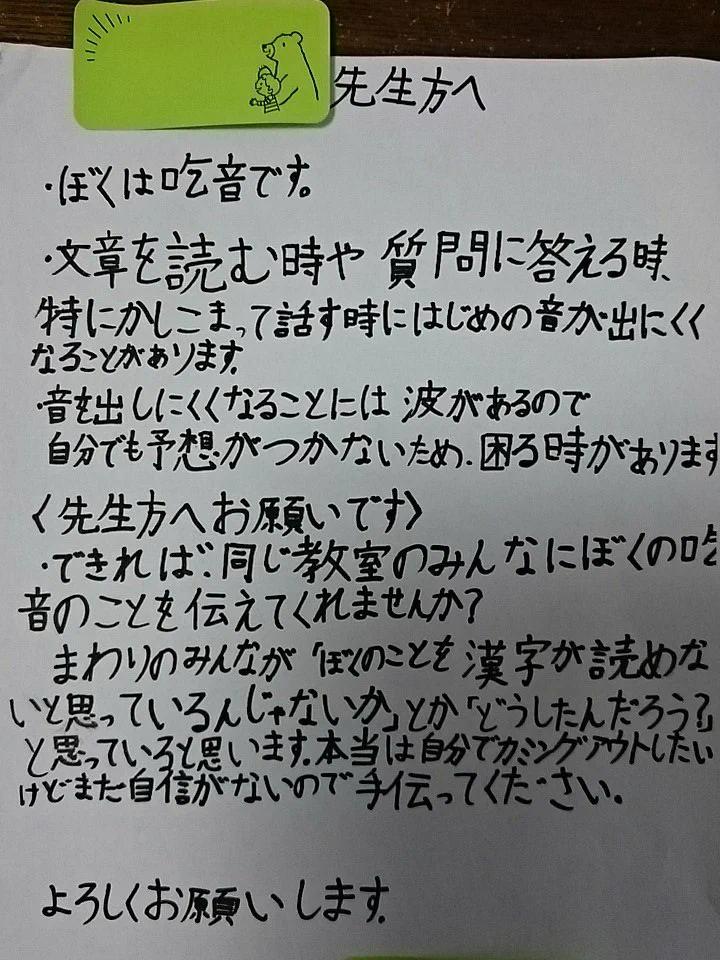 先生方へ
・ぼくは吃音です。
・文章を読む時や 質問に答える時、
特にかしこまって話す時にはじめの音が出にくく
なることがあります。
・音を出しにくくなることには 波があるので
自分でも予想がつかないため、困る時があります
〈先生方へお願いです〉
・できれば、同じ教室のみんなにぼくの吃
音のことを伝えてくれませんか?
まわりのみんなが「ぼくのことを漢字が読めな
いと思っているんじゃないか」とか「どうしたんだろう?」
と思っていると思います。本当は自分でカミングアウトしたい
けどまだ自信がないので手伝ってください。
よろしくお願いします。